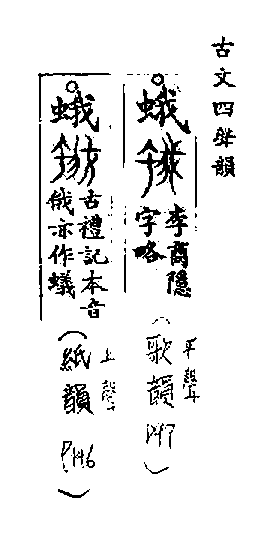 古文四聲韻
蛾
李商隱
字略
平聲
(歌韻
P147)
蛾
古禮記本音
俄亦作蟻
上聲
(紙韻
P146)